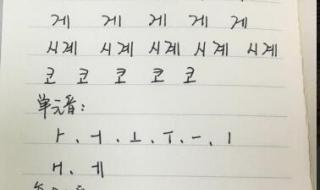 게 게 게 게 게
시계 시계 시계 시계 시계
코 코 코 코 코
单元音:
ㅏ、ㅓ、ㅗ、ㅜ、ㅡ、ㅣ
ㅐ、ㅔ